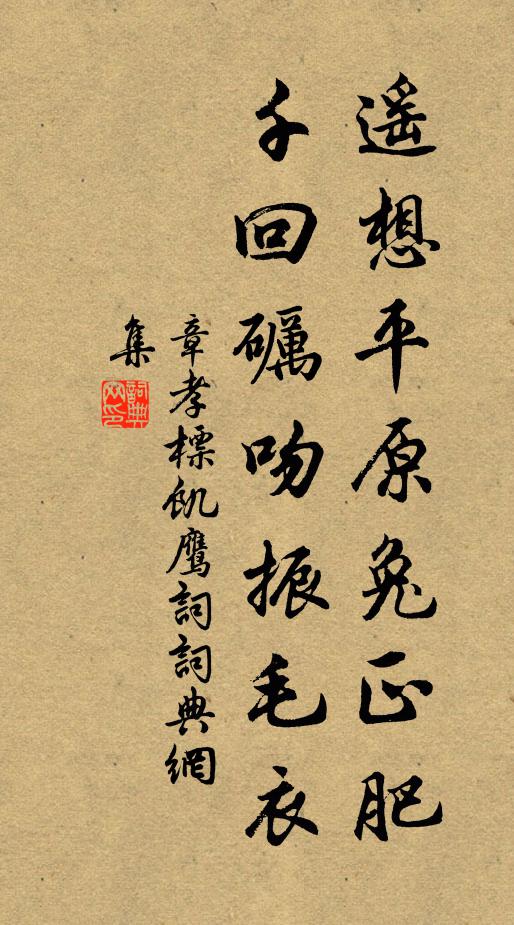 遥想平原兔正肥
千回礪吻振毛衣
章孝標飢鷹詞詞典網
集
詞典網印